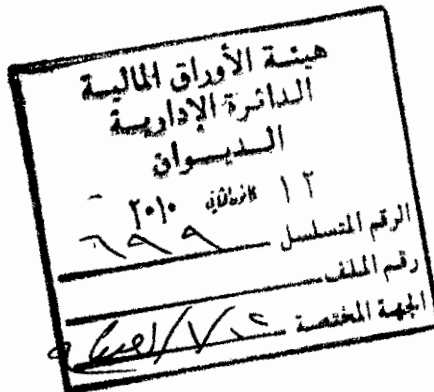 هيئة الأوراق المالية
الدائرة الإدارية
الديوان
١٢ كانون الثاني ٢٠١٠
الرقم المتسلسل ٦٩٩
رقم الملف
الجهة المختصة